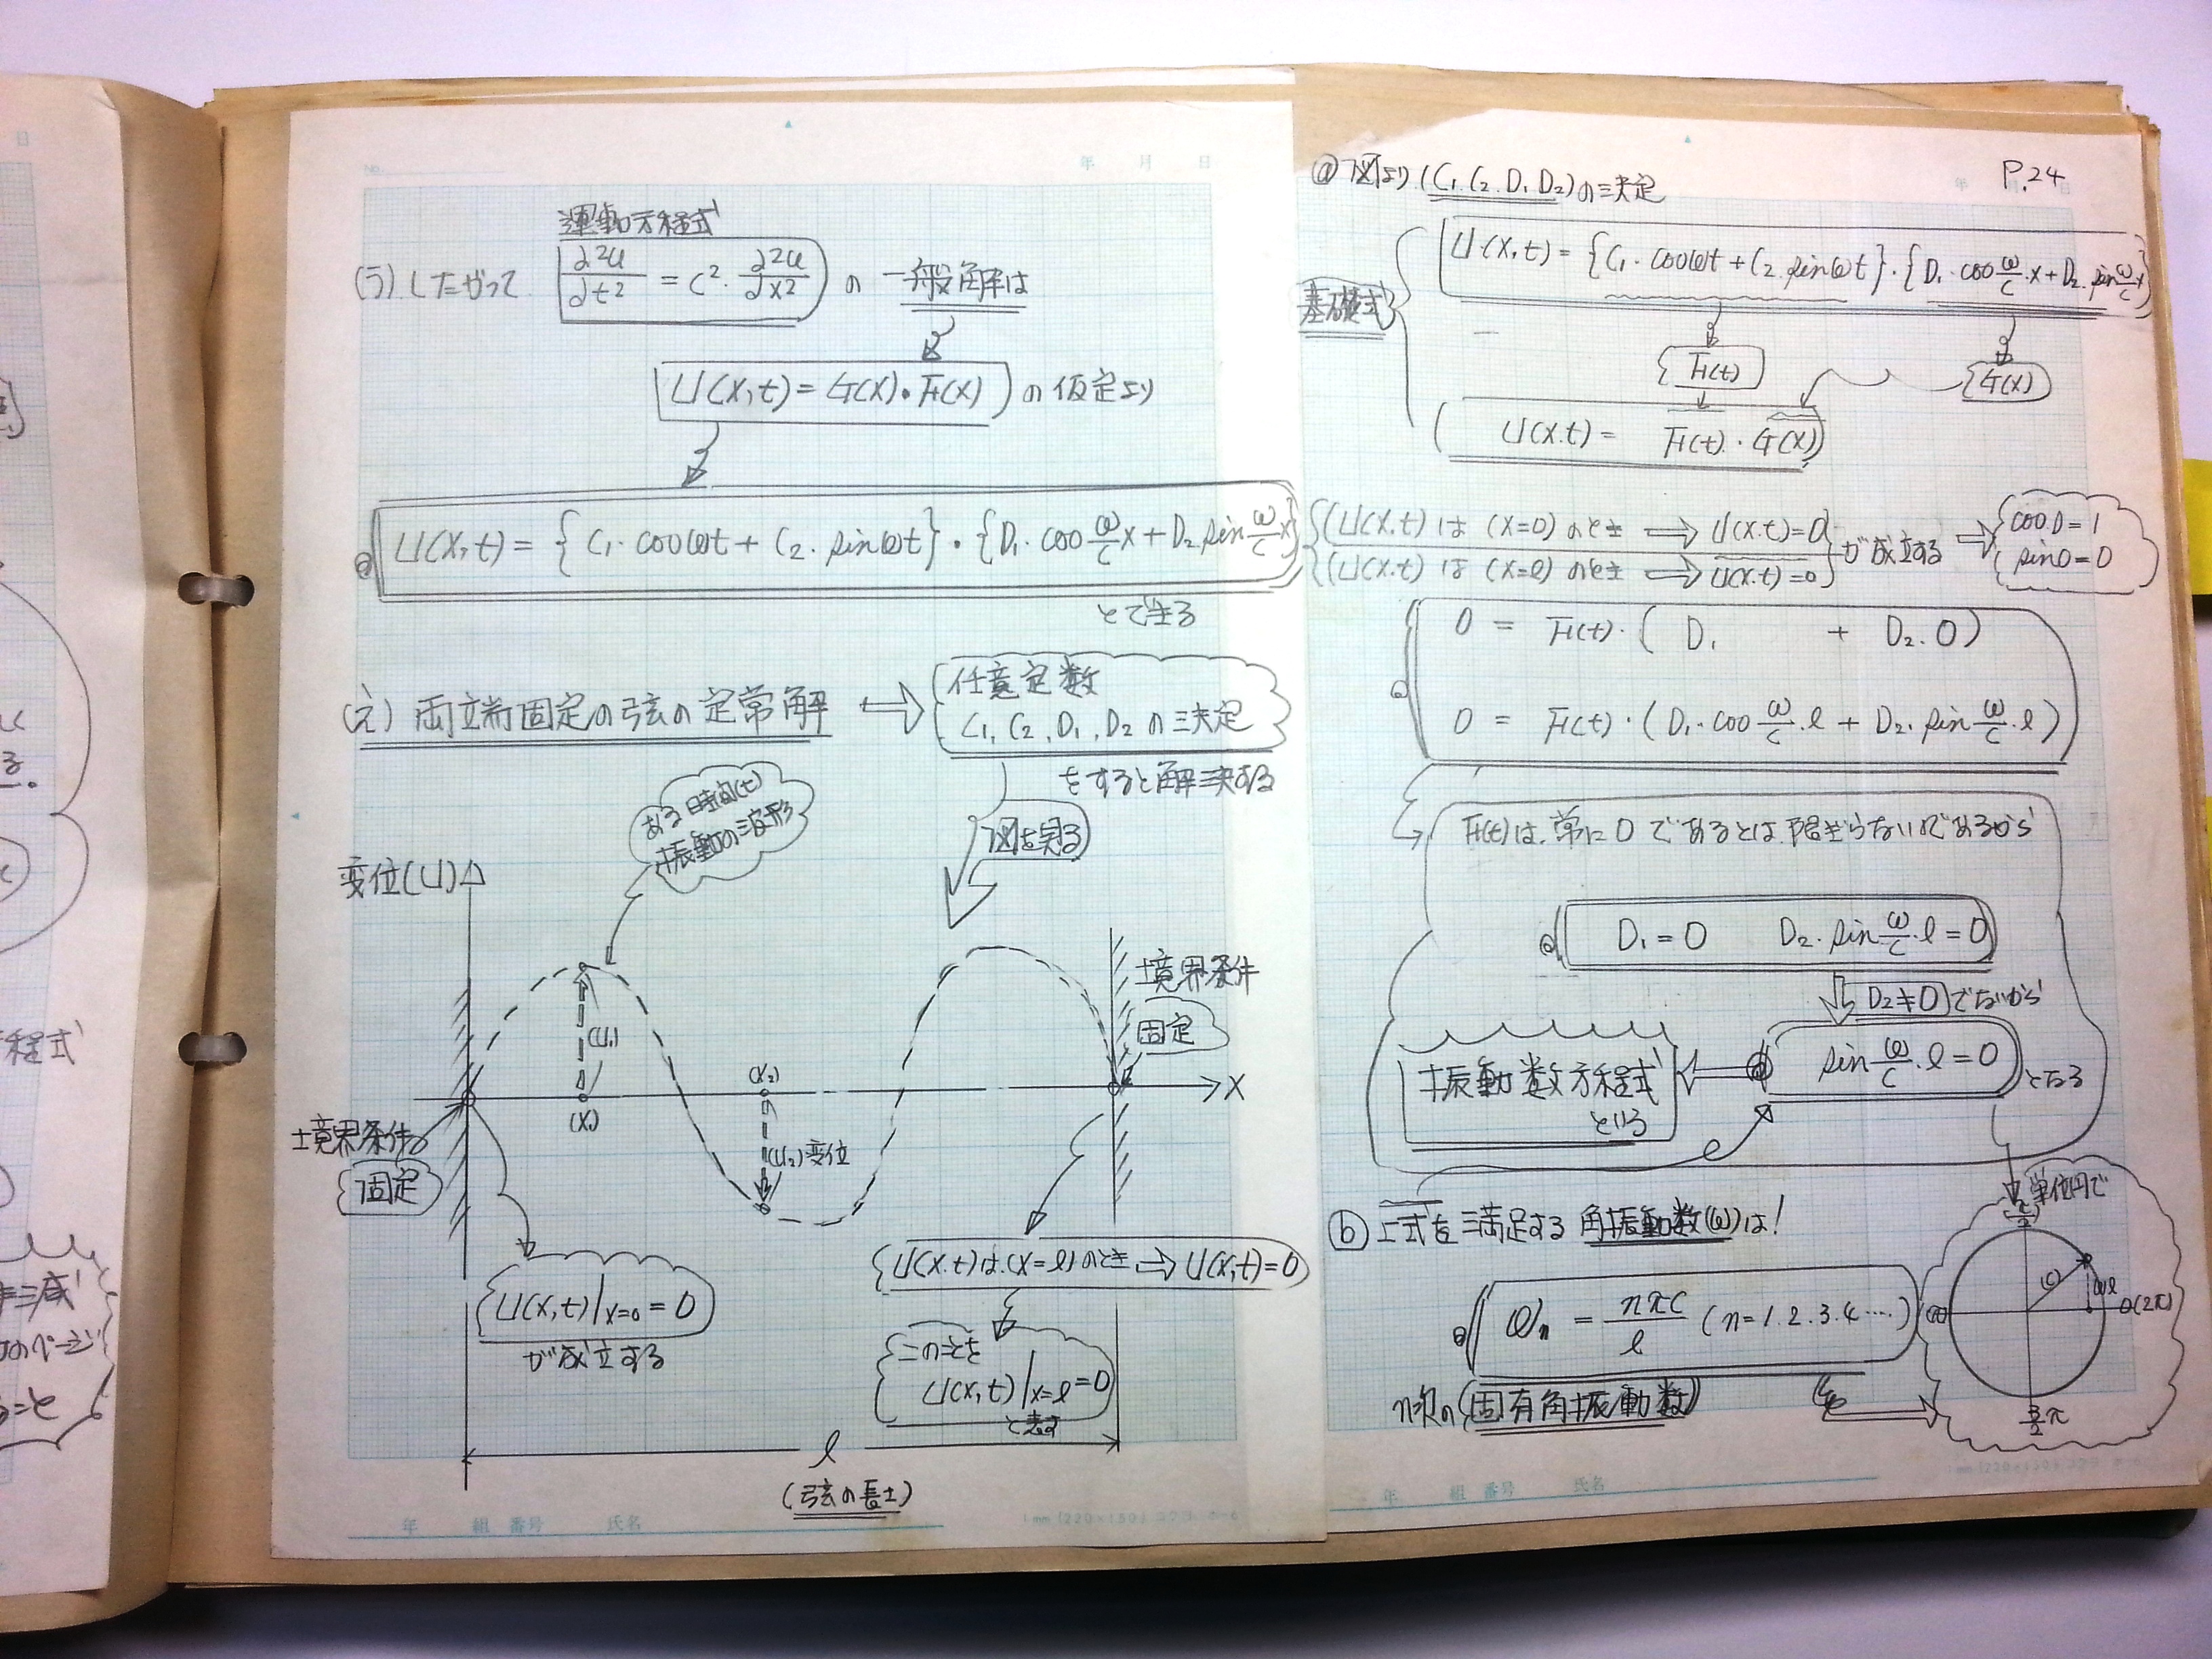 No.
年 月 日
運動方程式
(う)したがって ∂²u/∂t² = c²・∂²u/∂x² の 一般解は
U(x,t) = G(x)・F(x) の仮定より
U(x,t) = {C₁・cosωt + C₂・sinωt}・{D₁・cos ω/c x + D₂・sin ω/c x}
とできる
(え)両立端固定の弦の定常解
任意定数
C₁, C₂, D₁, D₂ の決定
をすると解決する
下図を見る
ある時間(t)
振動の波形
変位(U)
境界条件
固定
(U₁)
(x₁)
(x₂)
(U₂)変位
X
境界条件
固定
U(x,t)|x=0 = 0
が成立する
U(x.t)は(x=ℓ)のとき ⇒ U(x,t)=0
このことを
U(x,t)|x=ℓ = 0
と表す
ℓ
(弦の長さ)
年 組 番号 氏名
P.24
ⓐ 下図より(C₁. C₂. D₁. D₂)の決定
基礎式
U(x,t) = {C₁・cosωt + C₂・sinωt}・{D₁・cos ω/c・x + D₂・sin ω/c x}
F(t)
G(x)
U(x.t) = F(t)・G(x)
(U(x.t) は (x=0) のとき ⇒ U(x.t)=0
(U(x.t) は (x=ℓ) のとき ⇒ U(x.t)=0
が成立する ⇒
cos0=1
sin0=0
0 = F(t)・( D₁ + D₂・0)
0 = F(t)・(D₁・cos ω/c・ℓ + D₂・sin ω/c・ℓ)
F(t)は、常に0であるとは限ぎらないのであるから
D₁=0 D₂・sin ω/c・ℓ=0
D₂≠0でないから
sin ω/c・ℓ=0
となる
振動数方程式
という
ⓑ 上式を満足する 角振動数(ω)は!
ωn = nπc/ℓ (n=1.2.3.4....)
n次の(固有角振動数)
単位円で
π/2
0(2π)
3/2π
年 組 番号 氏名
程式